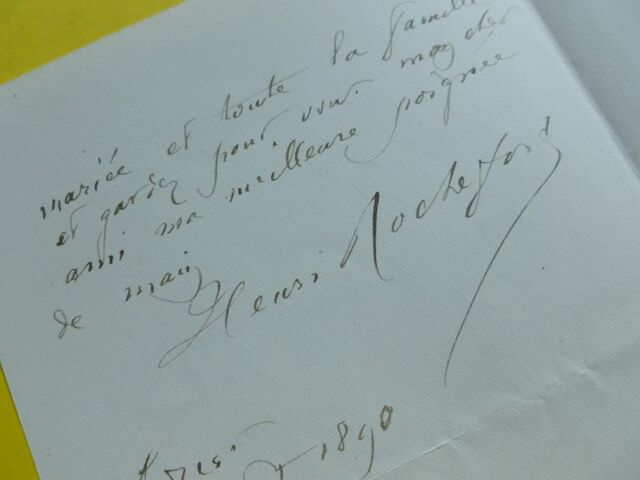 mariée et toute la famille
et gardez pour vous mon cher
ami ma meilleure poignée
de main
Henri Rochefort
1890